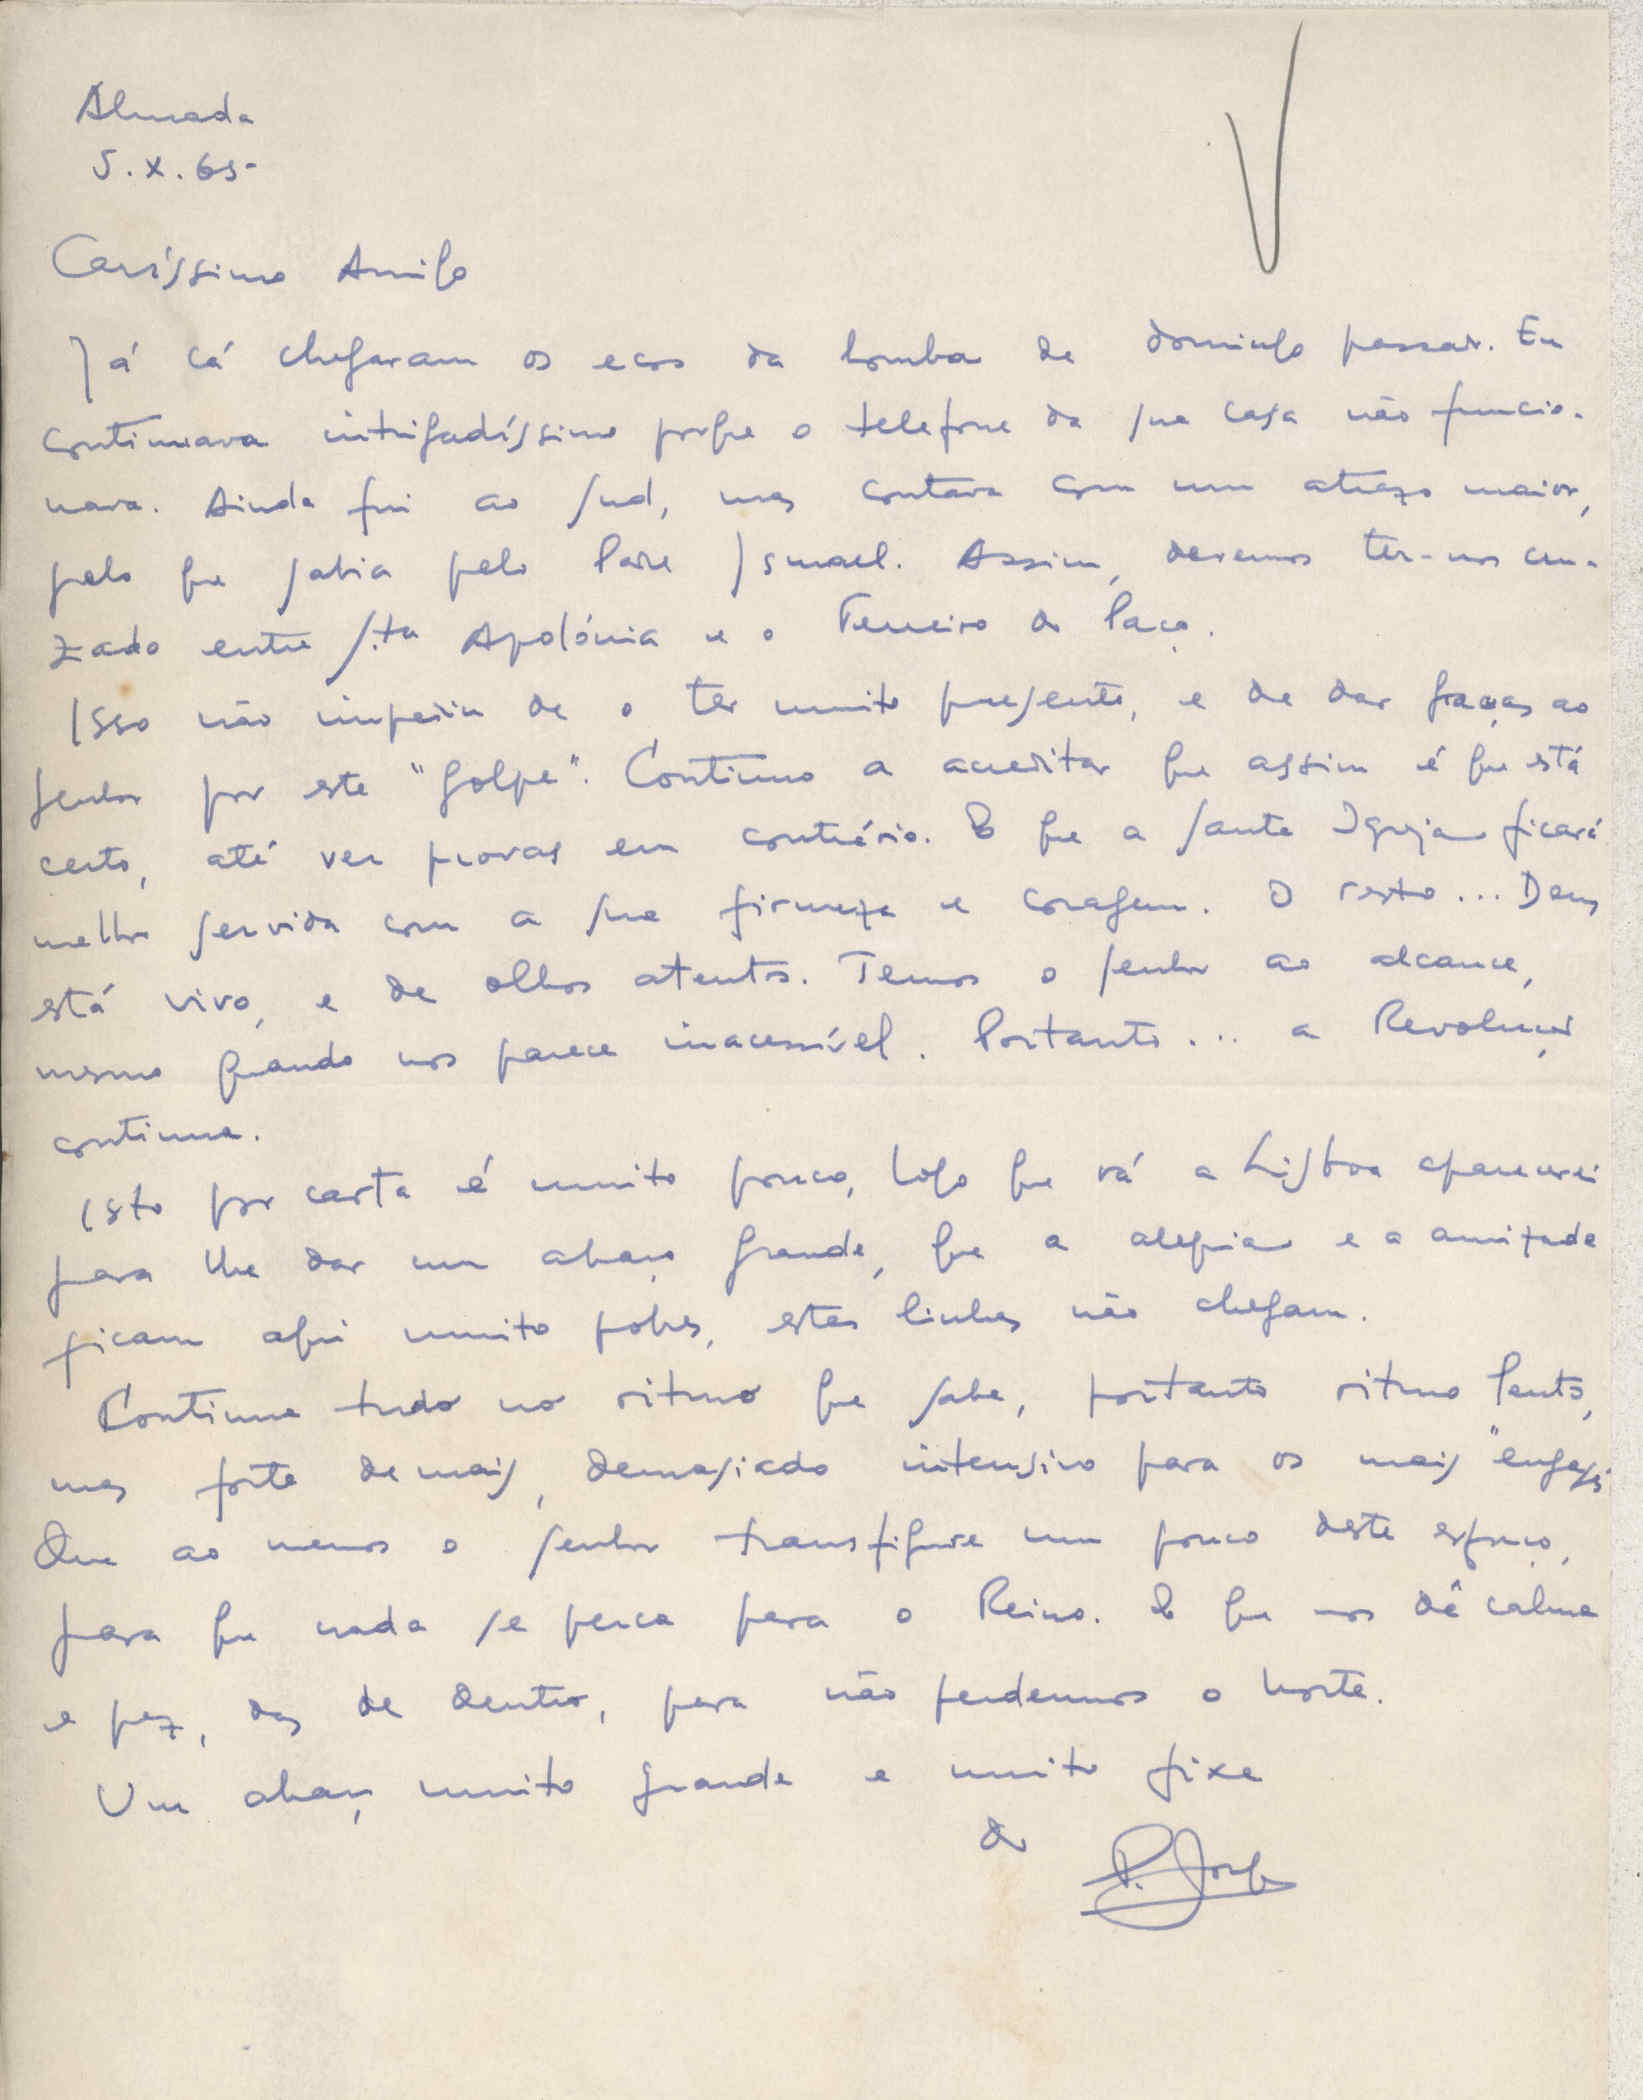 Almada
5.X.65-
Caríssimo Amigo
Já cá chegaram os ecos da bomba de domingo passado. Eu
continuava intrigadíssimo porque o telefone da sua casa não funcio-
nava. Ainda fui ao Sud, mas contava com um atrazo maior,
pelo que sabia pelo Padre Ismael. Assim, devemos ter-nos cru-
zado entre S.ta Apolónia e o Terreiro do Paço.
Isso não impediu de o ter muito presente, e de dar graças ao
Senhor por este "golpe". Continuo a acreditar que assim é que está
certo, até ver provas em contrário. E que a Santa Igreja ficará
melhor servida com a sua firmeza e coragem. O resto... Deus
está vivo, e de olhos atentos. Temos o Senhor ao alcance,
mesmo quando nos parece inacessível. Portanto... a Revolução
continua.
Isto por carta é muito pouco, logo que vá a Lisboa aparecerei
para lhe dar um abraço grande, que a alegria e a amizade
ficam aqui muito pobres, estas linhas não chegam.
Continua tudo no ritmo que sabe, portanto ritmo lento,
mas forte demais, demasiado intensivo para os mais
Que ao menos o Senhor transfigure um pouco deste esforço,
para que nada se perca para o Reino. E que nos dê calma
e paz, das de dentro, para não perdermos o norte.
Um abraço muito grande e muito fixe
do
P. Jorge